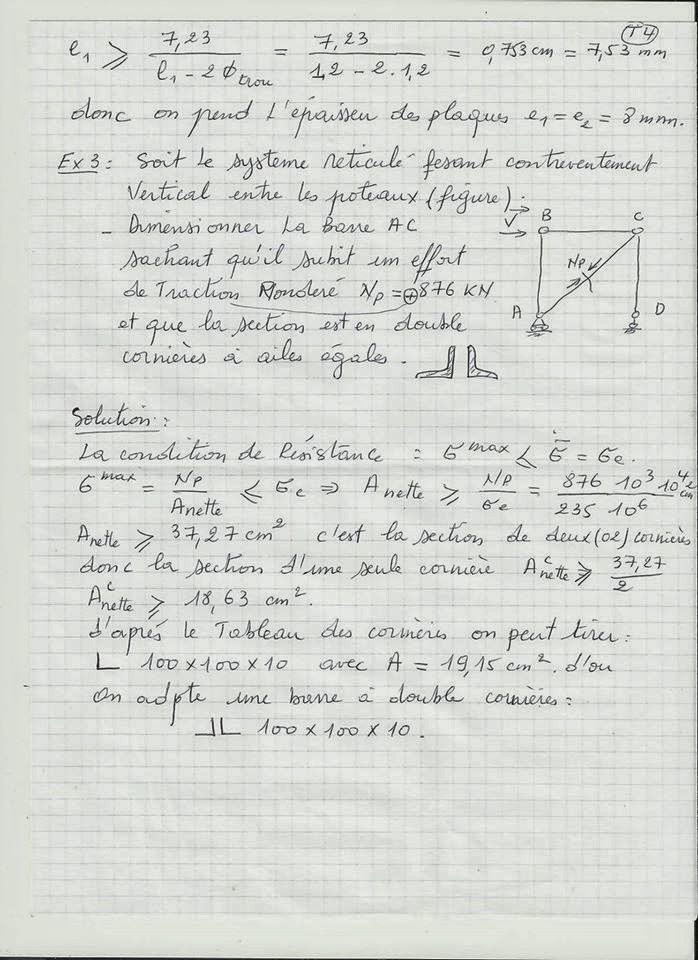 T4
e₁ ⩾ 7,23 / (l₁ - 2 Φtrou) = 7,23 / (1,2 - 2 . 1,2) = 0,753 cm = 7,53 mm
donc on prend L'épaisseur des plaques e₁ = e₂ = 8 mm.
Ex 3 : Soit le systeme réticulé fesant contreventement
Vertical entre les poteaux (figure).
- Dimensionner La Barre AC
sachant qu'il subit un effort
de Traction Ponderé Np = ⊕ 876 KN
et que la section est en double
cornières à ailes égales.
V B C
Np
A D
Solution :
La condition de Résistance : σmax ⩽ σ̄ = σe.
σmax = Np / Anette ⩽ σe ⇒ Anette ⩾ Np / σe = 876 10³ 10⁴ cm² / 235 10⁶
Anette ⩾ 37,27 cm² c'est la section de deux (02) cornières
donc la section d'une seule cornière Aᶜnette ⩾ 37,27 / 2
Aᶜnette ⩾ 18,63 cm².
d'aprés le Tableau des cornières on peut tirer :
L 100 x 100 x 10 avec A = 19,15 cm². d'ou
On adpte une barre à double cornières :
⅃L 100 x 100 x 10.